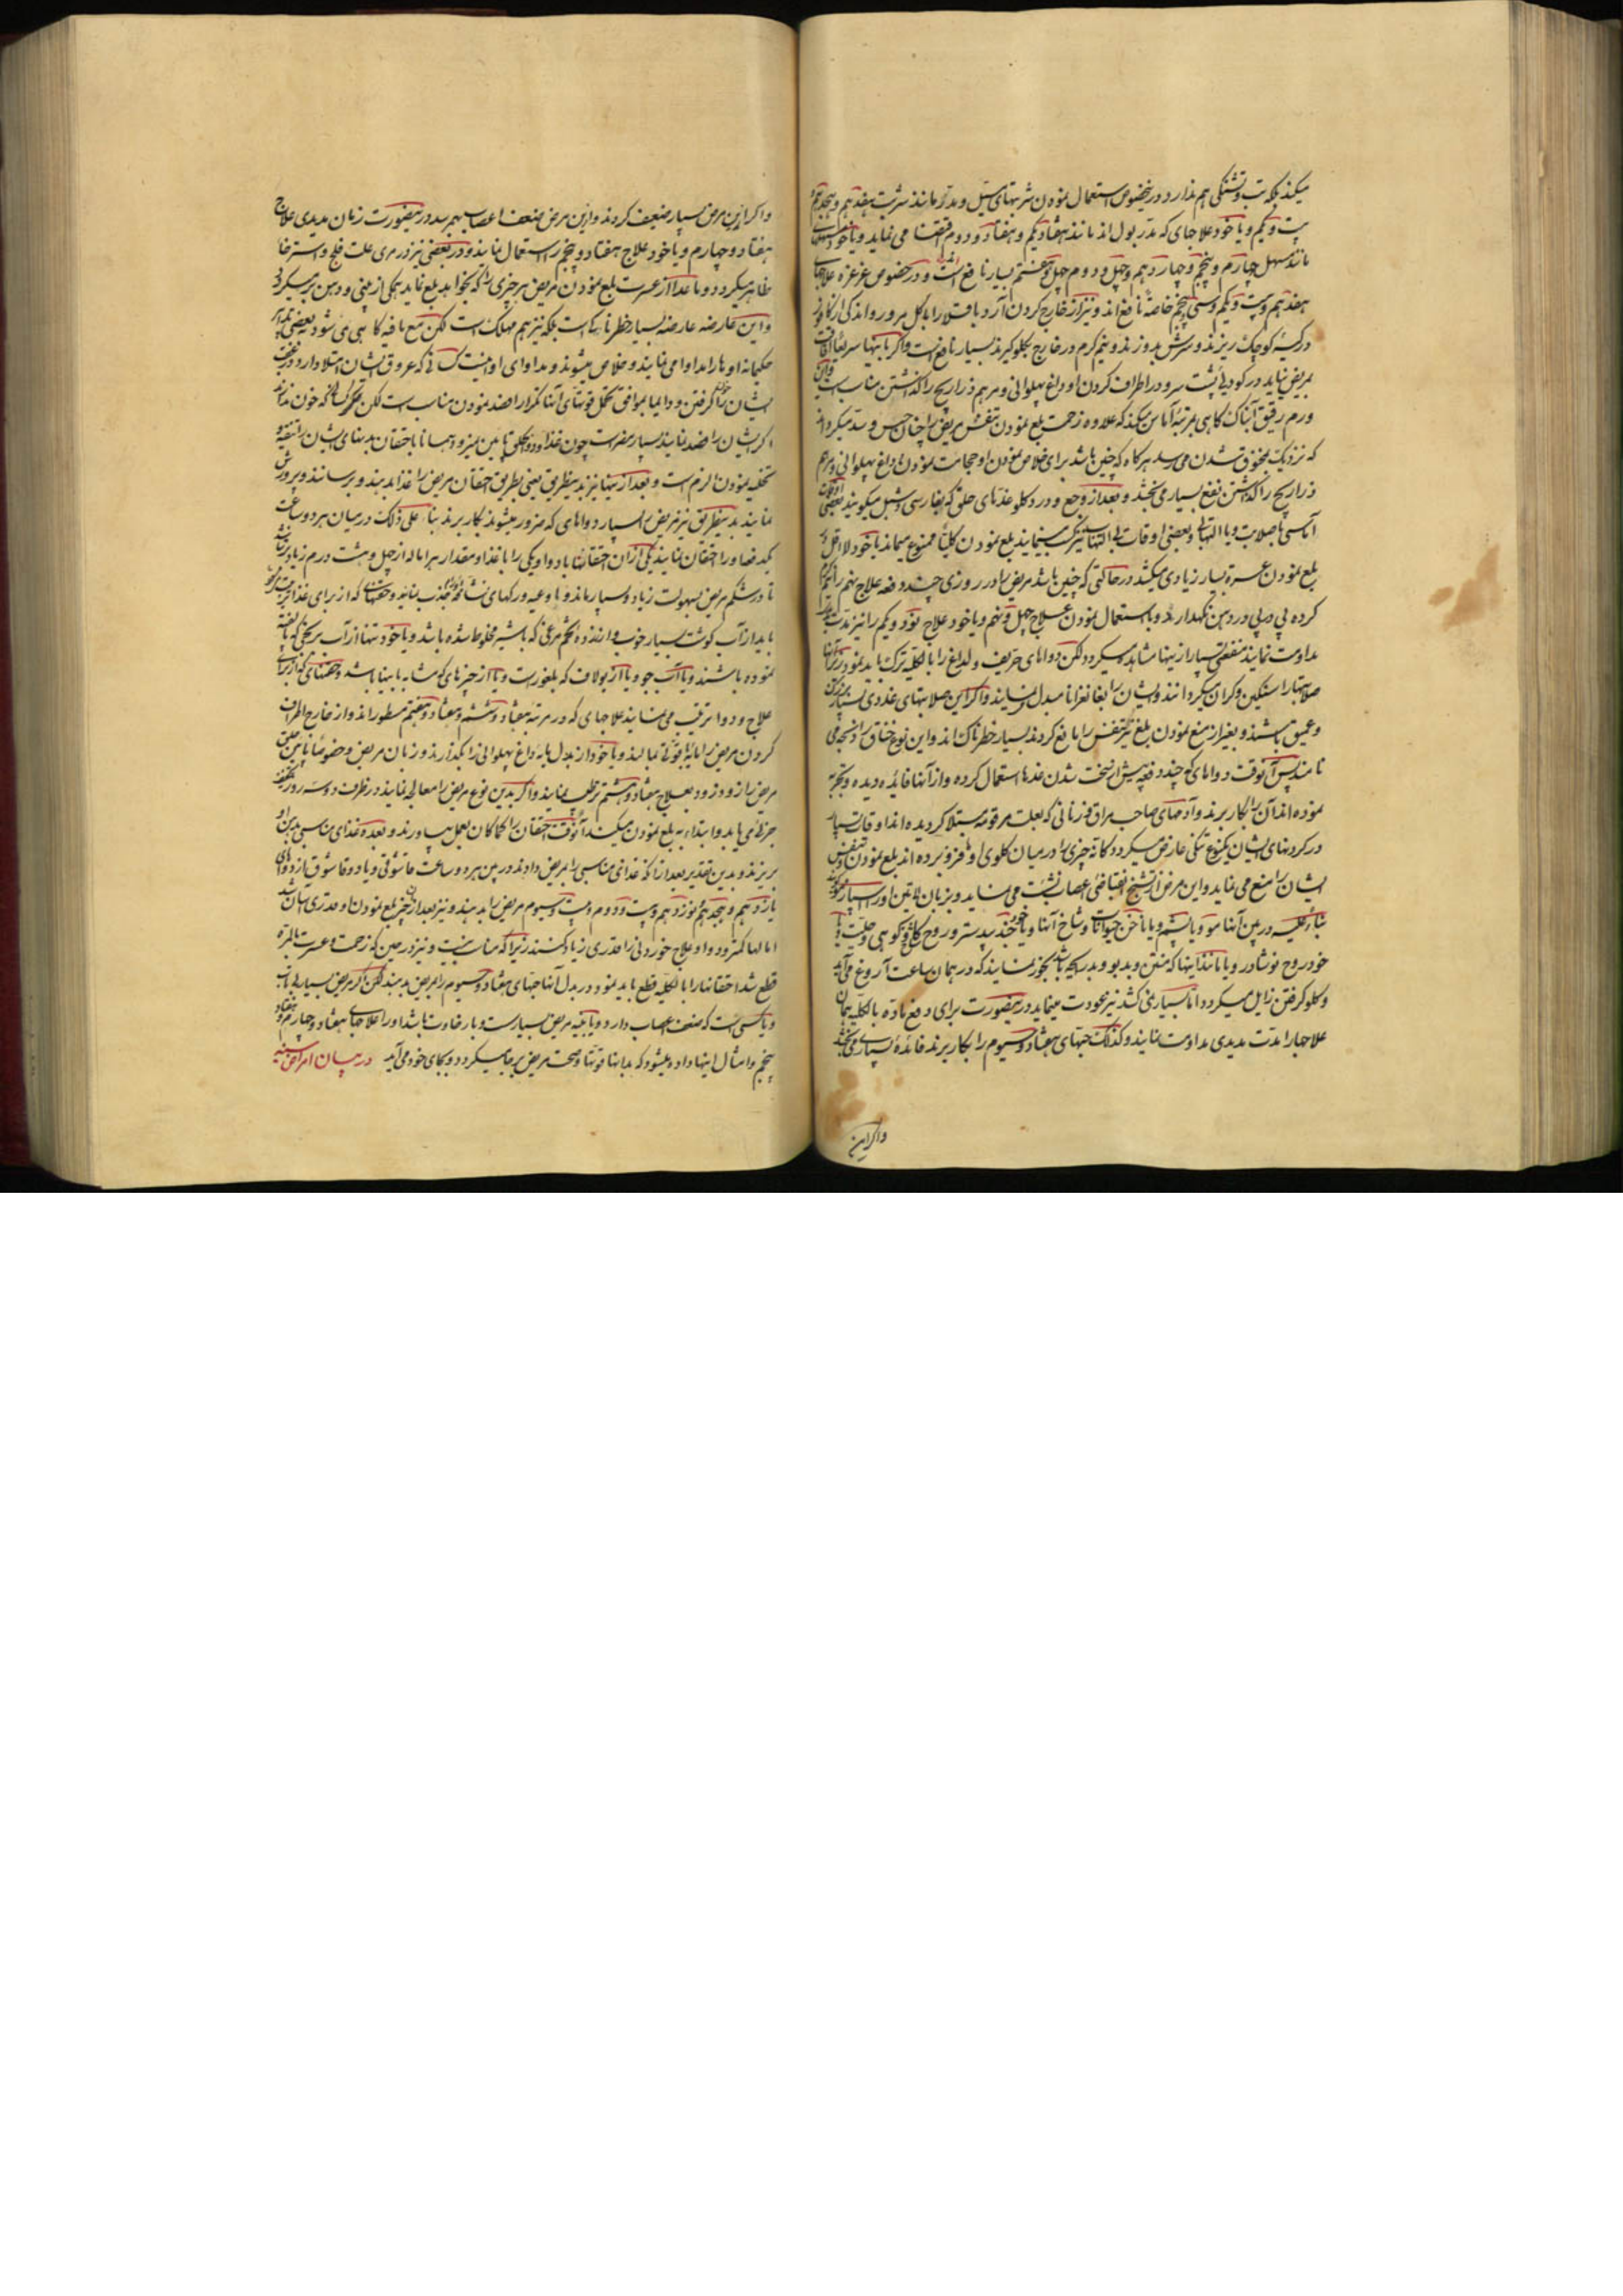 میکند بلکه تب و تشنگی هم ندارد در نیخصوص استعمال نمودن شربتهای مسیل و مدر مانند شربت هفدهم و هیجدهم
بیست و یکم و یا خود علاجهای که مدر بول اند مانند هفتاد و یکم و هفتاد و دوم اقتضا می نماید و یا خود مسهلهای
مانند مسهل چهارم و پنجم و چهاردهم و چهل و دوم و چهل و هشتم بسیار نافع است و در خصوص غرغره علاجهای
هفدهم و بیست و یکم و سی و پنجم خاصة نافع اند و نیز از خارج کردن آرد باقلا را با گل مرور و اندکی از کافور
در کیسهٔ کوچک ریزند و سرش بدوزند و نیم گرم در خارج بگلو گیرند بسیار نافع است و اگر باینها سریعا افاقت
بمریض نیاید در کودی پشت سر و در اطراف گردن او داغ پهلوانی و مرهم ذراریح را گذاشتن مناسب است و این
ورم رقیق آبناک گاهی بمرتبهٔ آماس میکند که علاوه زحمت بلع نمودن تنفس مریض را چنان حبس و سد میکرداند
که نزدیک بمخنوق شدن می رسد هرکاه که چنین باشد برای خلاص نمودن او حجامت نمودن و داغ پهلوانی و مرهم
ذراریح را گذاشتن نفع بسیار می بخشد و بعد از وجع و درد گلو غده‌های حلق که بفارسی دشبل میگویند بعضی اوقات
آماسی با صلابت و با التهاب و بعضی اوقات بی التهاب بزرگ مینمایند بلع نمودن کلیا ممنوع میماند یا خود لااقل
بلع نمودن عسرة بسیار زیادی میکشد در حالتی که چنین باشد مریض را در روزی چند دفعه علاج پنجم را نیم گرم
کرده پی درپی در دهن نگهدارند و با استعمال نمودن علاج چهل و پنجم و یا خود علاج نود و یکم را نیز مدت
مداومت نمایند منفعتی بسیار از اینها مشاهده میگردد لکن دواهای حریف و لداغ را بالکلیه ترک باید نمود زیرا اینها
صلابتها را سنگین و گران میگردانند و ایشان را بغانغرانا مبدل مینمایند و اگر این صلابتهای غددی بسیار بزرگ
و عمیق باشند و بغیر از منع نمودن بلع نیز تنفس را مانع گردند بسیار خطرناک اند و این نوع خناق را ذبحه می
نامند پس آنوقت دواهای که چند دفعه پیش از سخت شدن غده‌ها استعمال کرده و از آنها فائده دیده و تجربه
نموده اند آن را بکار برند و آدمهای صاحب مراق و زنانی که بعلت مرقومه مبتلا گردیده اند اوقات بسیار
در گردنهای ایشان یکنوع تنگی عارض میگردد کانه چیزی را در میان گلوی او فرو برده اند بلع نمودن و تنفس
ایشان را منع می نماید و این مرض از تشنج انقباضی اعصاب نشئت می نماید و بزبان لاتین او را
بناء علیه در پین آنها مو و یا پشم و یا ناخن حیوانات و شاخ آنها و یا خود جند بیدستر و روح کوهی و حلتیت و یا
خود روح نوشادر و یا مانند اینها که منتن و بد بو و بد ریحه باشد بخور نمایند که در همان ساعت آروغ می آید
و گلو گرفتن زایل میگردد اما بسیاری نکشد نیز عودت مینماید در اینصورت برای دفع ماده بالکلیه همان
علاجها را مدت مدیدی مداومت نمایند و کذلک حبهای هفتاد و سیوم را بکار برند فائدهٔ بسیاری می بخشد
و اگر این
و اگر این مرض بسیار ضعیف کردند و از این مرض ضعف اعصاب بهم رسد در اینصورت زمان مدیدی علاج
هفتاد و چهارم و یا خود علاج هفتاد و پنجم را استعمال نمایند و در بعضی نیز در مری علت فلج و استرخا
ظاهر میگردد و ماعدا از عسرت بلع نمودن مریض هر چیزی را که بخواهد بلع نماید همگی از بینی و دهن بر میگردد
و این عارضه عارضهٔ بسیار خطرناک است بلکه نیز هم مهلک است لکن مع مافیه گاهی می شود بعضی تدابیر
حکیمانه او را مداوا می نمایند و خلاص میشوند و مداوای او اینست کسانی که عروق ایشان امتلا دارد
ایشان را خون گرفتن و دایما بموافق تحمل قوتهای آنها تکرار فصد نمودن مناسب است لکن دیگر کسانی که خون ندارند
اگر ایشان را فصد نمایند بسیار مضر است چون غذا و دوا بگلو پایین نمیرود همانا باحتقان بدنهای ایشان را تنقیه و
تخلیه نمودن الزم است و بعد از اینها نیز بدینطریق یعنی بطریق احتقان مریض را غذا بدهند و برسانند و پرورش
نمایند بدینطریق نیز مریض را بسیار دواهای که ضرور میشوند بکار برند بناء علی ذلک در میان هر دو ساعت
یکدفعه او را احتقان نمایند یکی از آن احتقانها با دوا و یکی را با غذا و مقدار هر اماله از چهل و هشت درم زیاد نباشد
تا در شکم مریض بسهولت زیاد و بسیار ماند و اوعیه و رگهای جذب نمایند و حقنهای که از برای غذا
باید از آب گوشت بسیار خوب و از زردهٔ تخم مرغی که با شیر مخلوط شده باشد و یا خود تنها از آب برنجی که پخته
نموده باشند و یا آب جو و یا از یولاف که بلغور است و یا از چیزهای که مشابه باینها باشد و حقنهای که از برای
علاج و دوا ترتیب می نمایند علاجهای که در مرتبهٔ هفتاد و ششم و هفتاد و هفتم مسطور اند و از خارج اطراف
گردن مریض را با قوتی بمالند و یا خود از بدل داغ پهلوانی را بگذارند و زبان مریض و خصوصا پایین حلق
مریض را زود زود بعلاج هفتاد و هشتم تر طلب نمایند و اگر بدین نوع مریض را معالجه نمایند در ظرف دو سه روز تخفیف
جزئی یابد و ابتداء به بلع نمودن میکند آنوقت احتقان را کماکان بعمل بیاورند و بعده غذای مناسبی بدهان او
بریزند و بدین تقدیر بعد از آنکه غذای مناسبی را بمریض دادند در پین هر دو ساعت قاشوقی و یا دو قاشوق از دواهای
یازدهم و هیجدهم و نوزدهم و بیست و دوم و بیست و سیوم مریض را بدهند و نیز بعد از چیز بلع نمودن او قدری آسان شد
اماله‌ها کمتر و دوا و علاج خوردنی را قدری زیاد کنند زیرا که مناسب نیست و نیز در حین که زحمت و عسرت بالمره
قطع شد احتقانها را بالکلیه قطع باید نمود و در بدل آنها حبهای هفتاد و سیوم را بمریض بدهند لکن اگر مریض بسیار بی تاب
و یا کسی است که ضعف اعصاب دارد و یا بنیه مریض بسیار سست و با رخاوت باشد او را علاجهای هفتاد و چهارم و هفتاد و
پنجم و امثال اینها داده میشود که بدانها قوتها و صحت مریض بر جا میگردد و بجای خود می آید در بیان امراض سینه